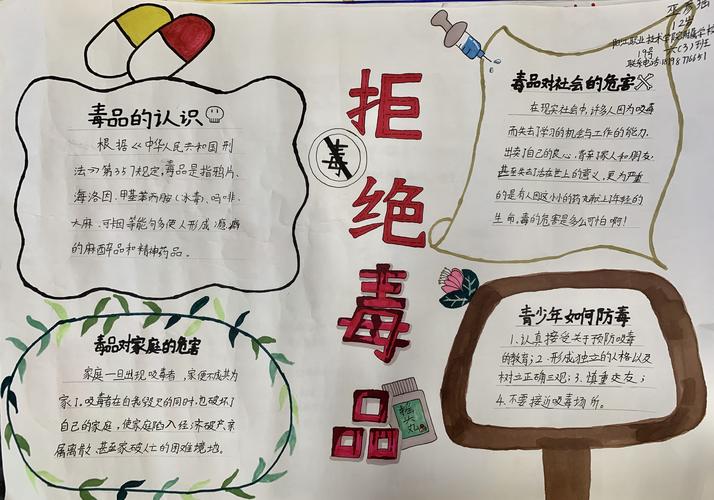 拒
绝
毒
品
毒
毒品的认识
根据《中华人民共和国刑
法》第357规定,毒品是指鸦片、
海洛因、甲基苯丙胺(冰毒)、吗啡、
大麻、可卡因等能够使人形成瘾癖
的麻醉品和精神药品。
毒品对社会的危害
在现实社会中,许多人因为吸毒
而失去了学习的机会与工作的能力,
出卖了自己的良心,背弃了家人和朋友,
甚至失去了活在世上的意义,更为严重
的是有人因这小小的药丸献上了年轻的
生命,毒的危害是多么可怕啊!
毒品对家庭的危害
家庭一旦出现吸毒者,家便不成其为
家了。吸毒者在自我毁灭的同时,也破坏了
自己的家庭,使家庭陷入经济破产、亲
属离散、甚至家破人亡的困难境地。
青少年如何防毒
1.认真接受关于预防吸毒
的教育;2.形成独立的人格以及
树立正确三观;3.慎重交友;
4.不要接近吸毒场所。
12号
19号 六(3)班